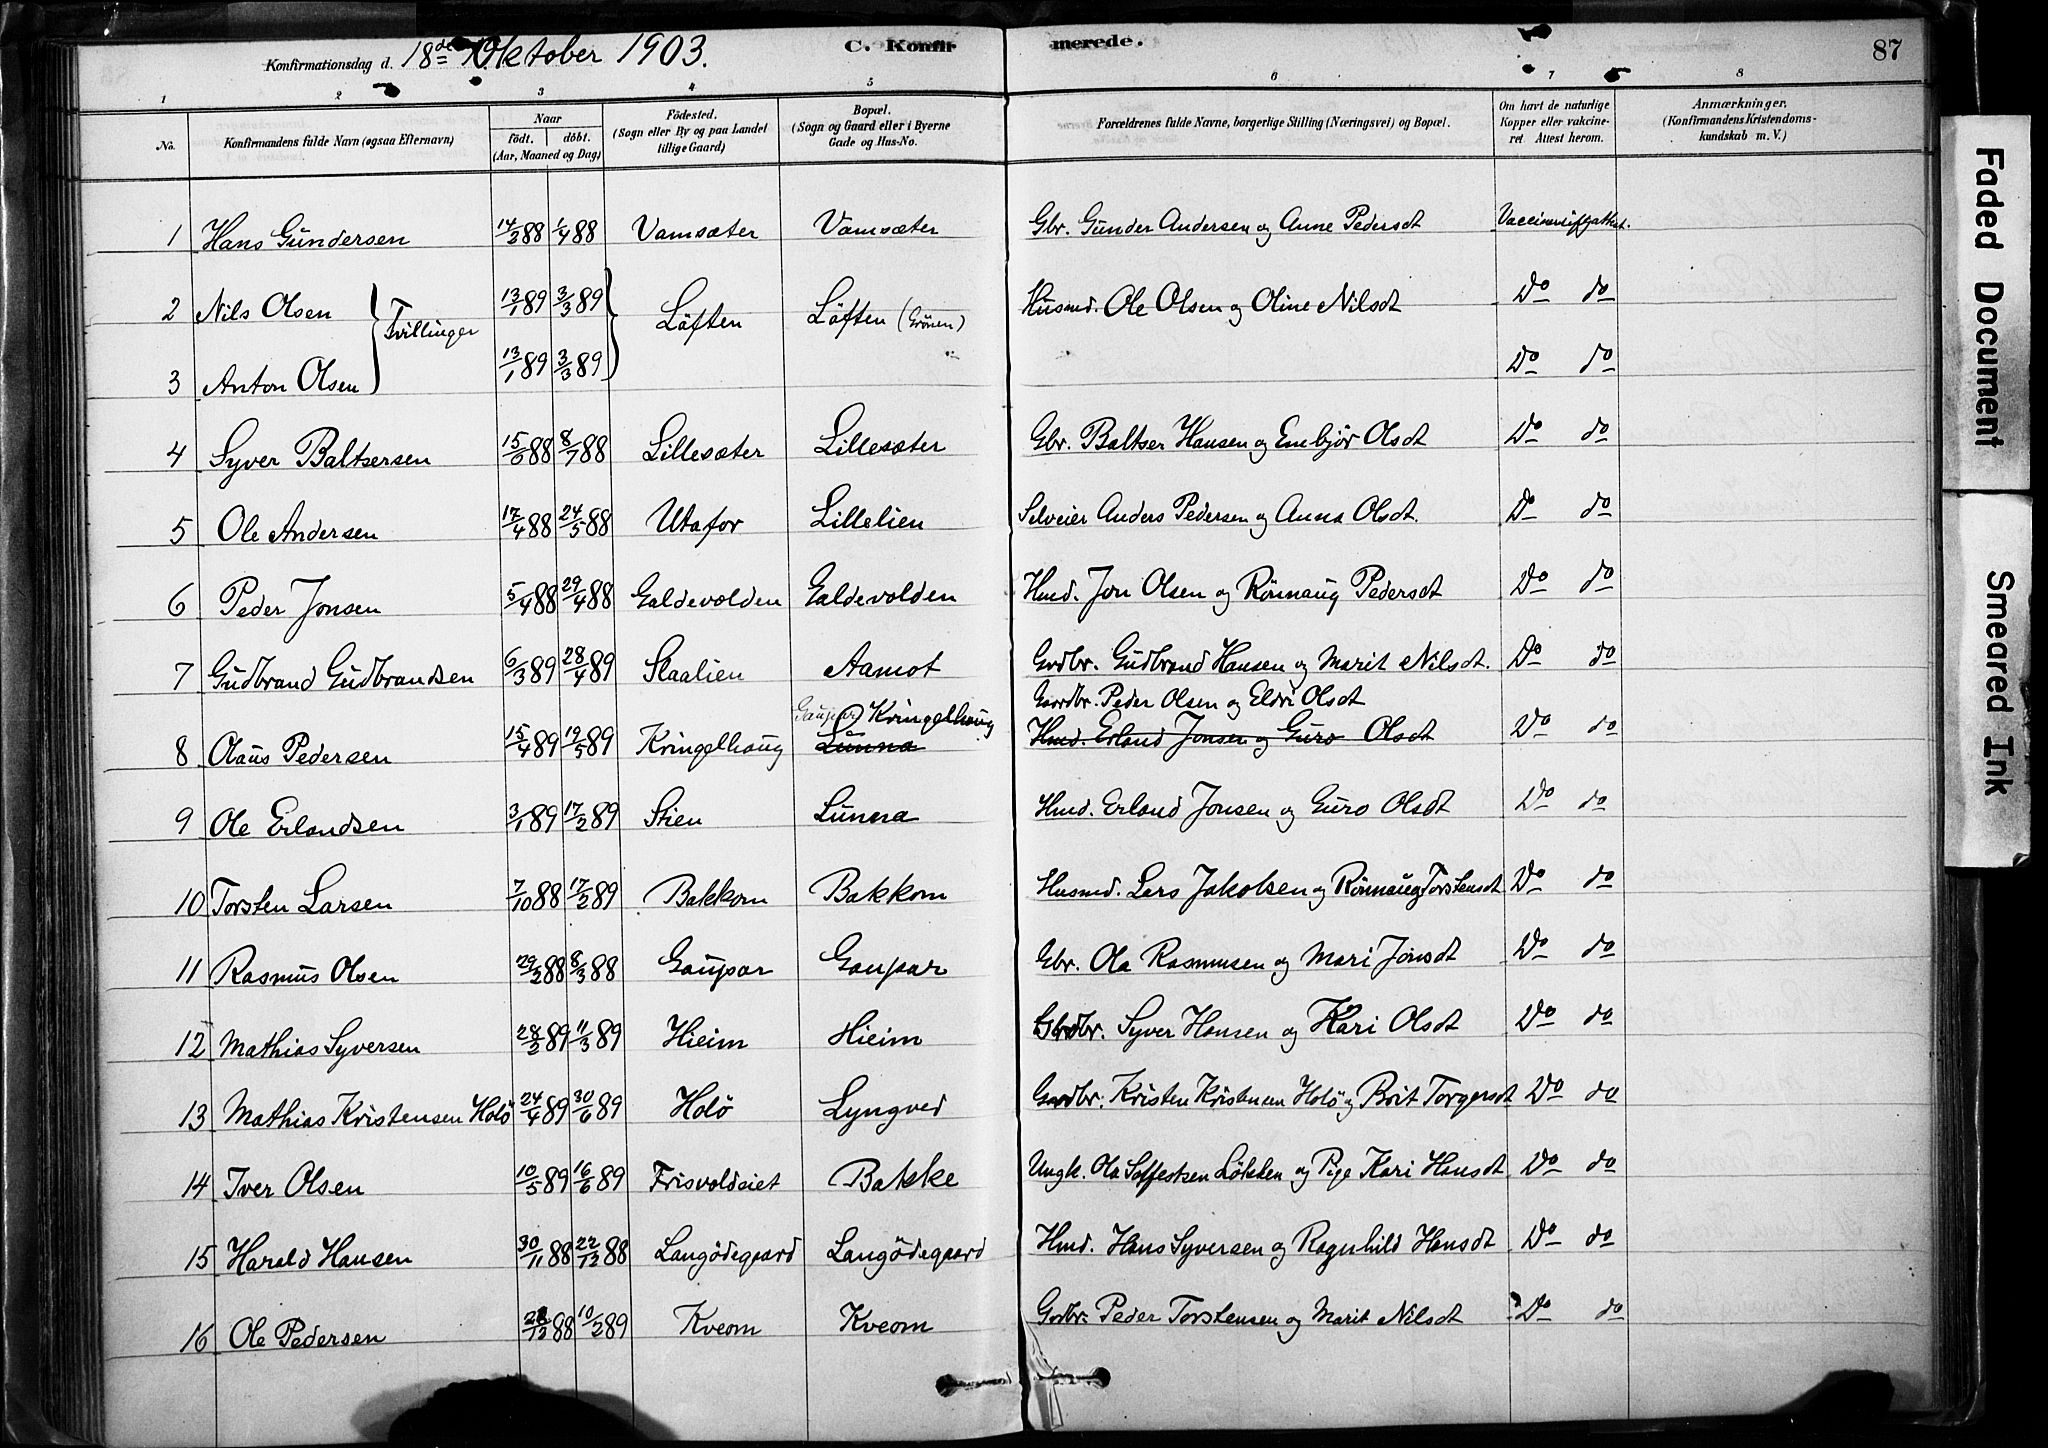 Konfirmationsdag d. 18de Oktober 1903. C. Konfirmerede. 87
1 2 3 4 5 6 7 8
No. Konfirmandens fulde Navn (ogsaa Efternavn) Naar födt. döbt. (Aar, Maaned og Dag) Födested. (Sogn eller By og paa Landet tillige Gaard) Bopæl. (Sogn og Gaard eller i Byerne Gade og Hus-No. Forældrenes fulde Navne, borgerlige Stilling (Næringsvei) og Bopæl. Om havt de naturlige Kopper eller vakcineret Attest herom. Anmærkninger. (Konfirmandens Kristendomskundskab m. V.)
1 Hans Gundersen 14/3 88 1/4 88 Vamsæter Vamsæter Gbr. Gunder Andersen og Anne Pedersdt
2 Nils Olsen Tvillinger 13/1 89 3/3 89 Löften Löften Husmd. Ole Olsen og Oline Nilsdt Do do
3 Anton Olsen 13/1 89 3/3 89 Do do
4 Syver Baltsersen 15/6 88 8/7 88 Lillesæter Lillesæter Gbr. Baltser Hansen og Embjör Olsdt Do do
5 Ole Andersen 17/4 88 24/5 88 Utafor Lillelien Selveier Anders Pedersen og Anna Olsdt. Do do
6 Peder Jonsen 5/4 88 29/4 88 Galdevolden Galdevolden Hmd. Jon Olsen og Rönnaug Pedersdt Do do
7 Gudbrand Gudbrandsen 6/3 89 28/4 89 Slaalien Aamot Grdbr. Gudbrand Hansen og Marit Nilsdt. Do do
Gaupar Kringelhaug Gaardbr. Peder Olsen og Eldri Olsdt
8 Olaus Pedersen 15/4 89 19/5 89 Kringelhaug Lunna Hmd. Erland Jonsen og Guro Olsdt Do do
9 Ole Erlandsen 3/1 89 17/2 89 Stien Lunna Hmd. Erland Jonsen og Guro Olsdt Do do
10 Torsten Larsen 7/10 88 17/2 89 Bakkom Bakkom Husmd. Lars Jakobsen og Rönnaug Torstensdt Do do
11 Rasmus Olsen 29/2 88 8/3 88 Gaupar Gaupar Gbr. Ola Rasmusen og Mari Jonsdt Do do
12 Mathias Syversen 28/2 89 11/3 89 Hieim Hieim Grdbr. Syver Hansen og Kari Olsdt Do do
13 Mathias Kristensen Holö 24/4 89 30/6 89 Holö Lyngved Gardbr. Kristen Kristensen Holö og Brit Torgersdt Do do
14 Iver Olsen 10/5 89 16/6 89 Frisvoldeiet Bakke Ungk. Ola Sylfestsen Lökken og Pige Kari Hansdt Do do
15 Harald Hansen 30/11 88 22/12 88 Langödegaard Langödegaard Hmd. Hans Syversen og Ragnhild Hansdt Do do
16 Ole Pedersen 28/12 88 10/2 89 Kveom Kveom Grdbr. Peder Torstensen og Marit Nilsdt Do do
Faded Document
Smeared Ink